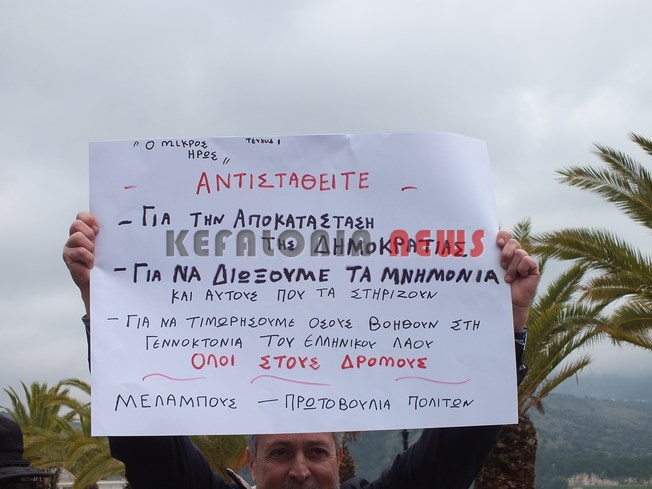 "Ο ΜΙΚΡΟΣ ΗΡΩΣ" ΤΕΥΧΟΣ 1
- ΑΝΤΙΣΤΑΘΕΙΤΕ -
- ΓΙΑ ΤΗΝ ΑΠΟΚΑΤΑΣΤΑΣΗ
ΤΗΣ ΔΗΜΟΚΡΑΤΙΑΣ
KEFALONIA NEWS
- ΓΙΑ ΝΑ ΔΙΩΞΟΥΜΕ ΤΑ ΜΝΗΜΟΝΙΑ
ΚΑΙ ΑΥΤΟΥΣ ΠΟΥ ΤΑ ΣΤΗΡΙΖΟΥΝ
- ΓΙΑ ΝΑ ΤΙΜΩΡΗΣΟΥΜΕ ΟΣΟΥΣ ΒΟΗΘΟΥΝ ΣΤΗ
ΓΕΝΝΟΚΤΟΝΙΑ ΤΟΥ ΕΛΛΗΝΙΚΟΥ ΛΑΟΥ
ΟΛΟΙ ΣΤΟΥΣ ΔΡΟΜΟΥΣ
ΜΕΛΑΜΠΟΥΣ - ΠΡΩΤΟΒΟΥΛΙΑ ΠΟΛΙΤΩΝ